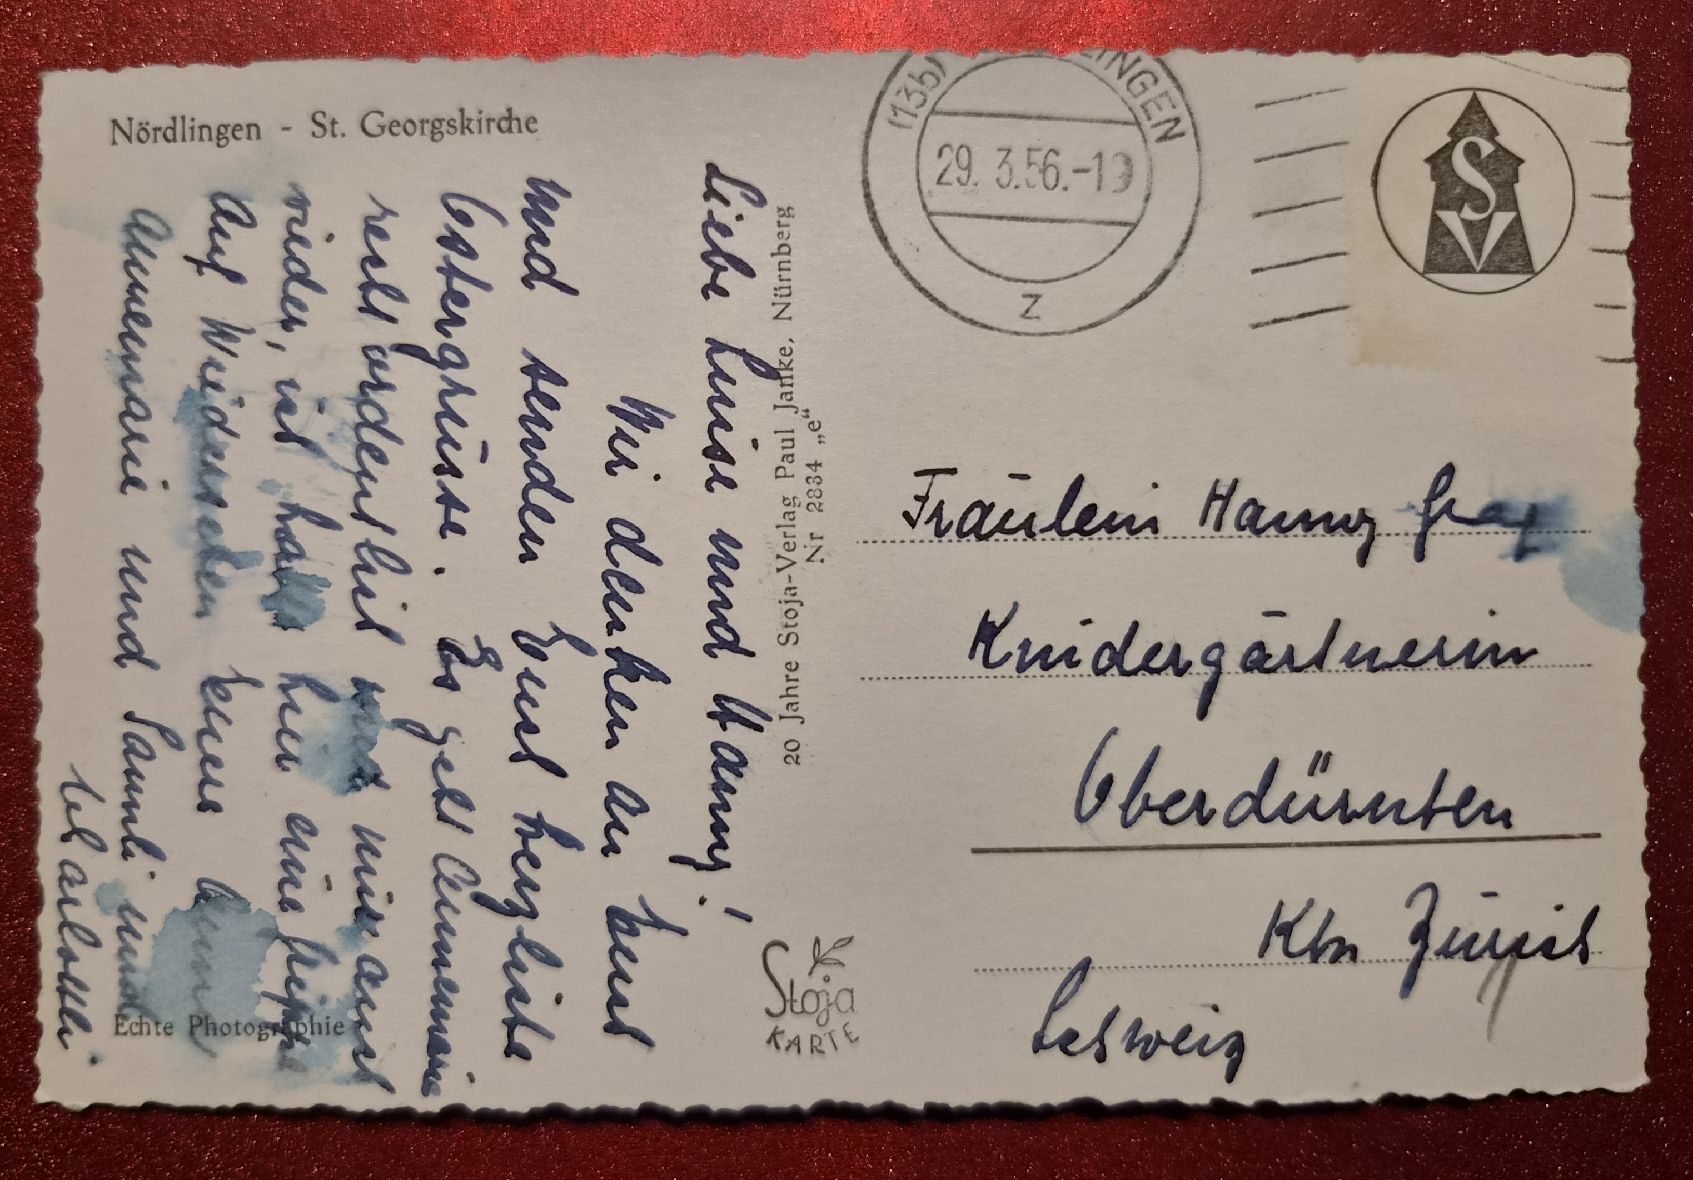 Nördlingen - St. Georgskirche
Liebe Luise und Hanny!
Wir denken an Euch
und senden Euch herzliche
Ostergrüsse. Es geht Annemarie
recht ordentlich, mir auch
wieder, ich hatte hier eine
Auf Wiedersehen Eure
Annemarie und Sannli und
Echte Photographie
20 Jahre Stoja-Verlag Paul Janke, Nürnberg
Nr 2834 „e"
Stoja
KARTE
(13b) LINGEN
29. 3.56.-19
Z
SV
Fräulein Hanny Graf
Kindergärtnerin
Oberdürnten
Ktn Zürich
Schweiz